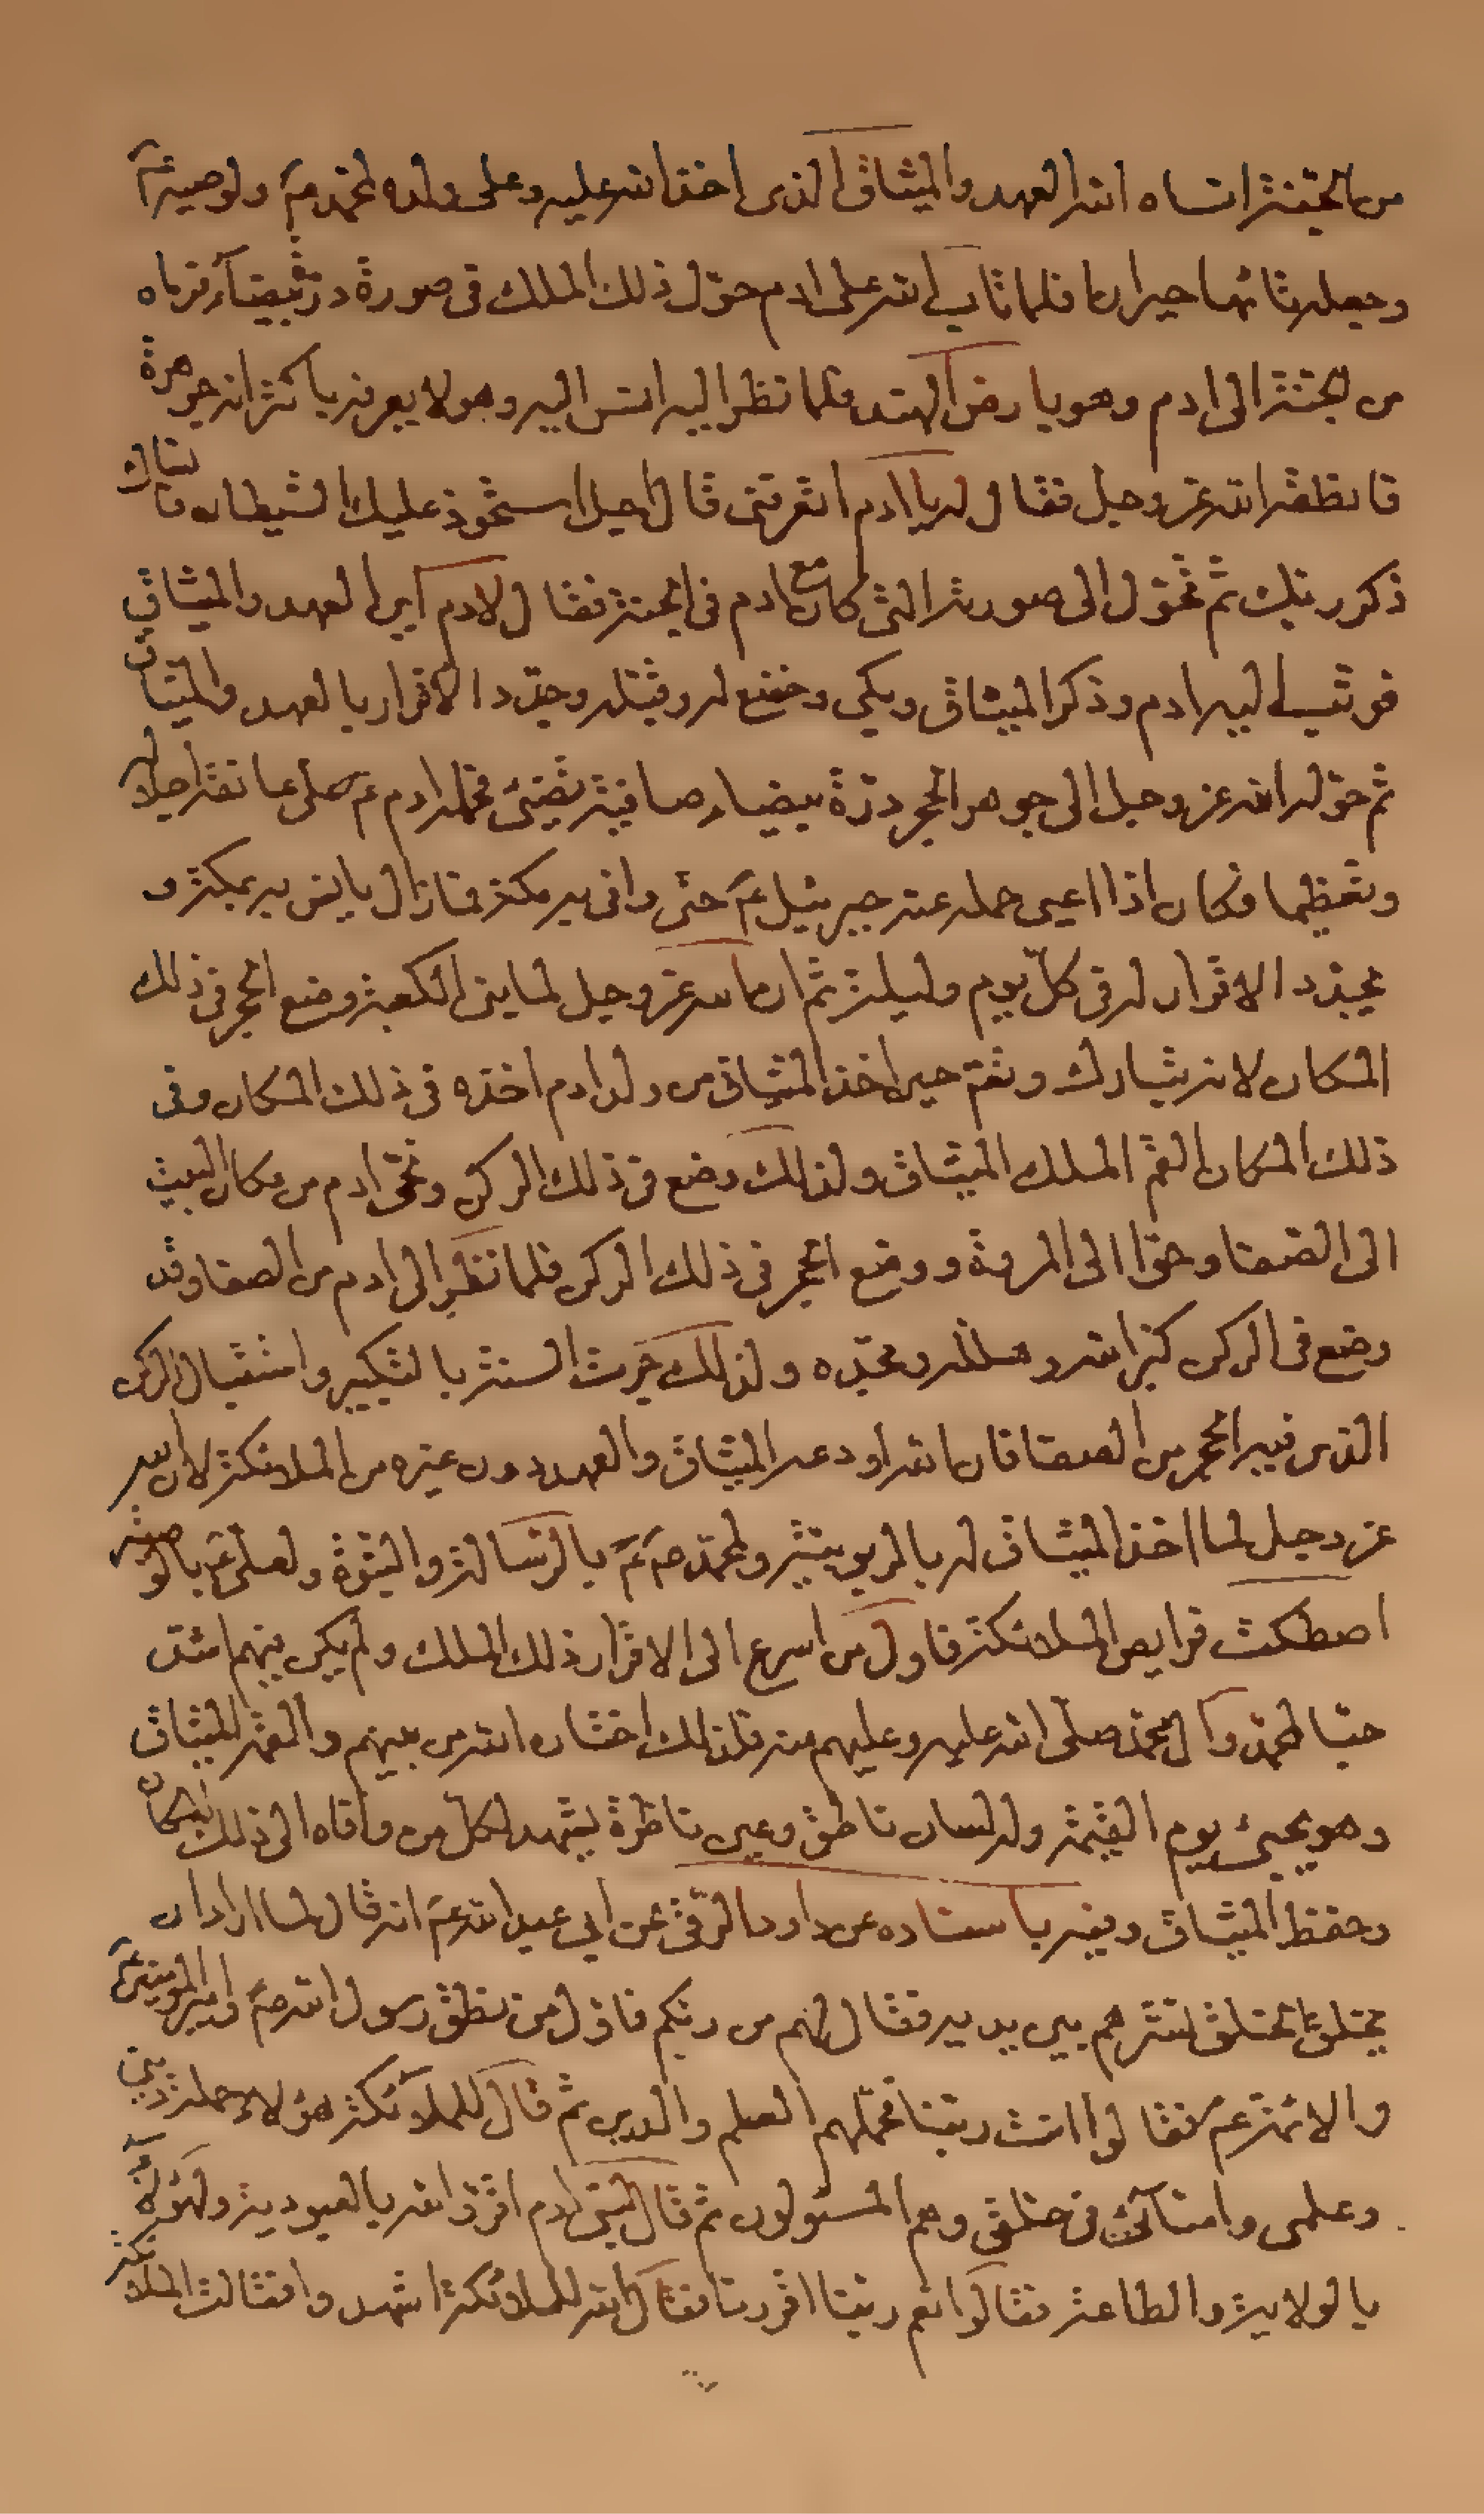 من الجنة انساه الله العهد والميثاق الذى اخذ الله عليه وعلى ولده لمحمد صم ولوصيه عم
وجعله تائها حيران فلما تاب الله على ادم حول ذلك الملك فى صورة درة بيضاء فرماه
من الجنة الى ادم وهو بارض الهند فلما نظر اليه انس اليه وهو لا يعرفه باكثر انه جوهرة
فانطقه الله عز وجل فقال له يا ادم اتعرفنى قال اجل استحوذ عليك الشيطان فانساك
ذكر ربك ثم تحول الى صورته التى كان مع ادم فى الجنة فقال لادم اين العهد والميثاق
فوثب اليه ادم وذكر الميثاق وبكى وخضع له وقبله وجدد الاقرار بالعهد والميثاق
ثم حوله الله عز وجل الى جوهر الحجر درة بيضاء صافية تضئ فحمله ادم عم على عاتقه اجلالا له
وتعظيما فكان اذا اعيى حمله عنه جبرئيل عم حتى وافى به مكة فما زال يانس به بمكة و
يجدد الاقرار له فى كل يوم وليلة ثم ان الله عز وجل لما بنى الكعبة وضع الحجر فى ذلك
المكان لانه تبارك وتعم حين اخذ الميثاق من ولد ادم اخذه فى ذلك المكان وفى
ذلك المكان القم الملك الميثاق ولذلك وضع فى ذلك الركن وتنحى ادم من مكان البيت
الى الصفا وحوا الى المروة ووضع الحجر فى ذلك الركن فلما نظر الى ادم من الصفا وقد
وضع فى الركن كبر الله وهلله ومجده ولذلك جرت السنة بالتكبير واستقبال الركن
الذى فيه الحجر من الصفا فان الله اودعه الميثاق والعهد دون غيره من الملائكة لان الله
عز وجل لما اخذ الميثاق له بالربوبية ولمحمد صم عم بالرسالة والنبوة ولعلى عم بالوصية
اصطكت فرايص الملائكة فاول من اسرع الى الاقرار ذلك الملك ولم يكن بينهم اشد
حبا لمحمد وآل محمد صلى الله عليه وعليهم منه فلذلك اختاره الله من بينهم والقمه الميثاق
وهو يجيئ يوم القيمة وله لسان ناطق وعين ناظرة ليشهد لكل من وافاه الى ذلك المكان
وحفظ الميثاق وفيه باسناده عن داود الرقى عن ابى عبد الله عم انه قال لما اراد ان
يخلق الخلق نثرهم بين يديه فقال لهم من ربكم فاول من نطق رسول الله صم وامير المومنين عم
والائمة عم فقالوا انت ربنا فحملهم العلم والدين ثم قال للملآئكة هؤلاء حملة دينى
وعلمى وامنآئى فى خلقى وهم المسئولون ثم قال لبنى ادم اقروا لله بالعبودية ولهؤلآء
بالولاية والطاعة فقالوا نعم ربنا اقررنا فقال الله للملائكة اشهدوا فقالت الملائكة